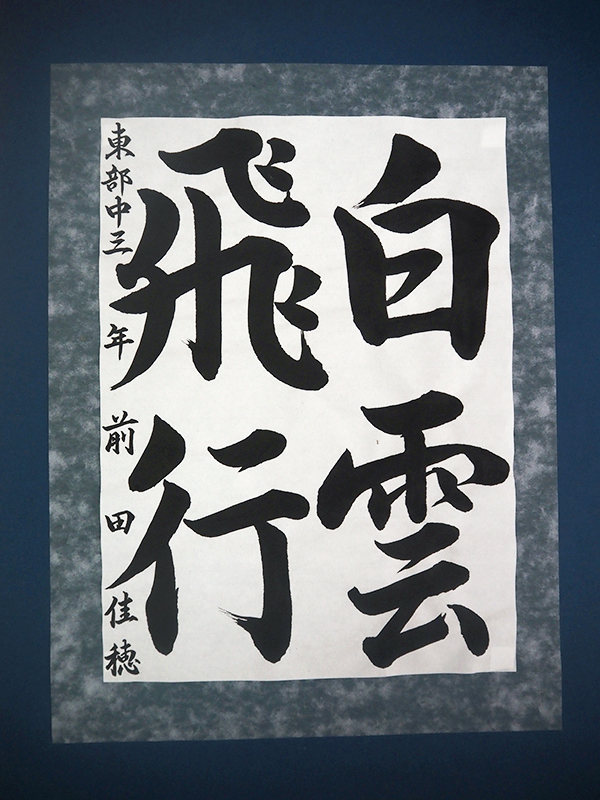 白雲
飛行
東部中三年前田佳穂